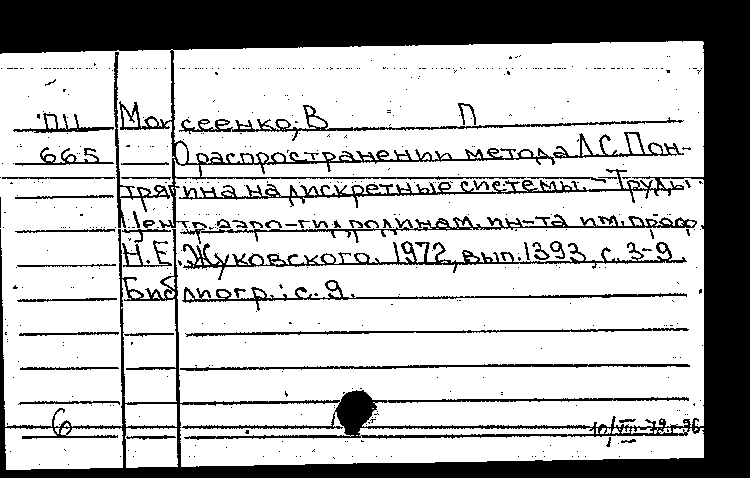 П11 Моисеенко, В П
665 О распространении метода Л.С. Пон-
трягина на дискретные системы. - Труды
Центр. аэро-гидродинам. ин-та им. проф.
Н.Е. Жуковского. 1972, вып. 1393, с. 3-9.
Библиогр.: с. 9.
6